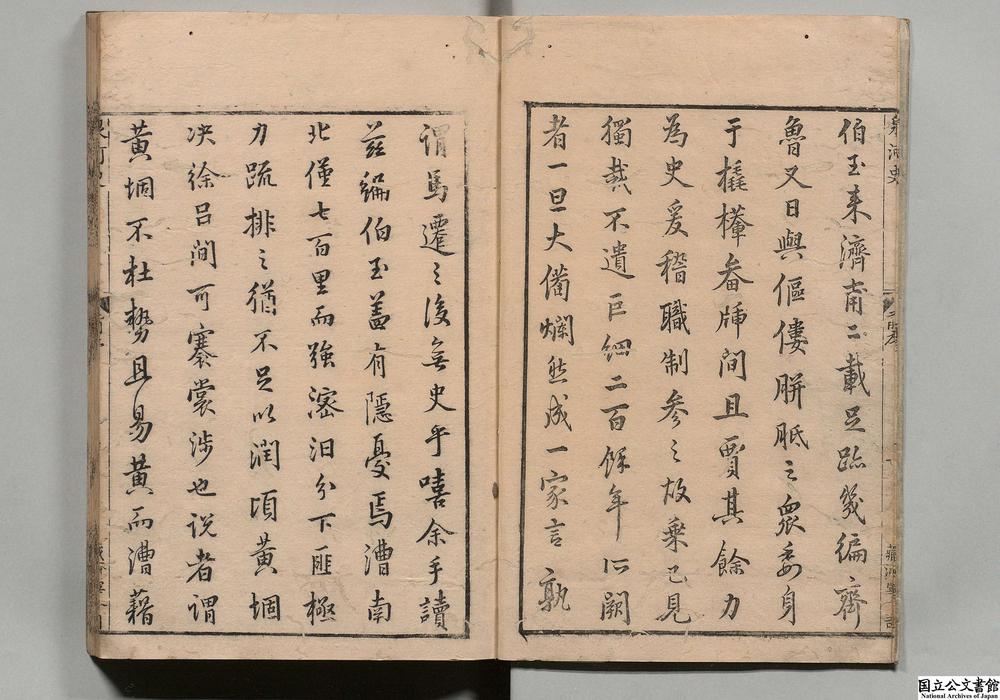 伯玉来濟甯二載足跡幾徧齊
魯又日與傴僂胼胝之衆委身
于橇樺畚牐間且賈其餘力
為史爰稽職制参之故乗己見
獨哉不遺巨細二百餘年心闕
者一旦大備爛然成一家言孰
謂馬遷之後無史乎嘻余手讀
茲編伯玉盖有隱憂焉漕南
北僅七百里而強濬汨分下匪極
力疏排之猶不足以潤頃黄堌
决徐吕間可褰裳涉也说者謂
黄堌不杜勢且易黄而漕藉
泉河史
国立公文書館
National Archives of Japan